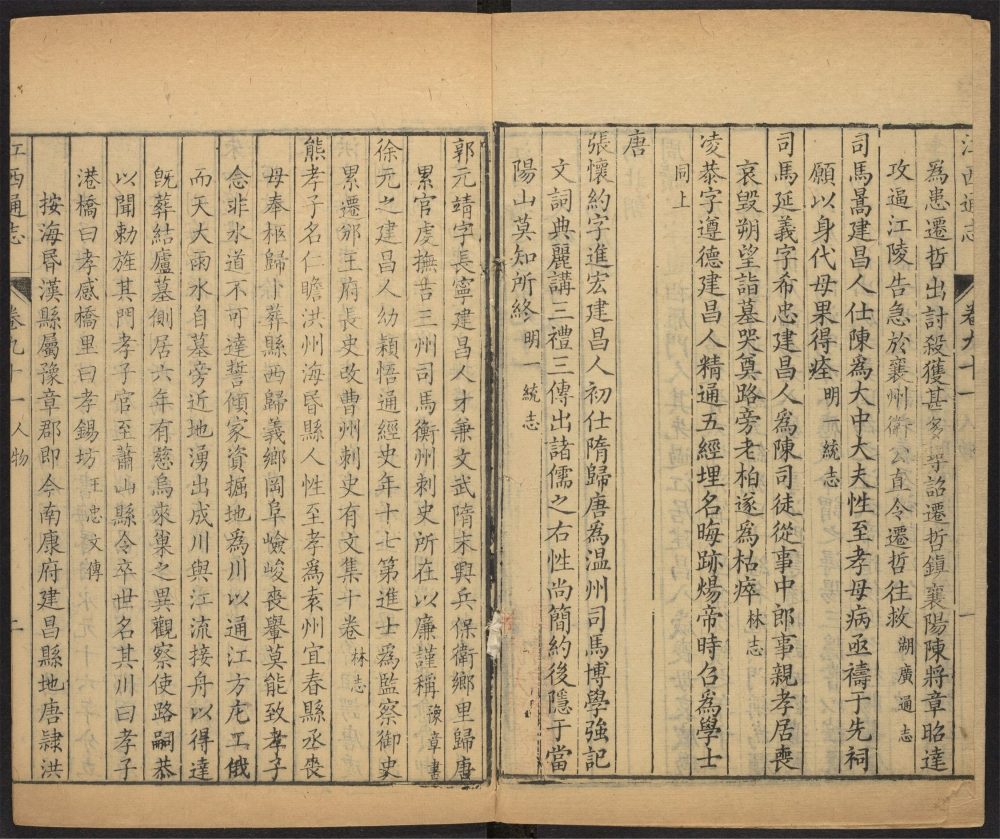 江西通志 卷九十一 一
為患遷哲出討殺獲甚多尋詔遷哲鎮襄陽陳將章昭達
攻逼江陵告急於襄州衛公直令遷哲往救湖廣通志
司馬暠建昌人仕陳為大中大夫性至孝母病亟禱于先祠
願以身代母果得痊明一統志
司馬延義字希忠建昌人為陳司徒從事中郎事親孝居喪
哀毀朔望詣墓哭奠路旁老柏遂為枯瘁林志
凌恭字遵德建昌人精通五經埋名晦跡煬帝時召為學士
同上
唐
張懷約字進宏建昌人初仕隋歸唐為温州司馬博學強記
文詞典麗講三禮三傳出諸儒之右性尚簡約後隱于當
陽山莫知所終明一統志
郭元靖字長寧建昌人才兼文武隋末興兵保衛鄉里歸唐
累官虔撫吉三州司馬衡州刺史所在以廉謹稱豫章書
徐元之建昌人幼穎悟通經史年十七第進士為監察御史
累遷邠王府長史改曹州刺史有文集十卷林志
熊孝子名仁瞻洪州海昏縣人性至孝為袁州宜春縣丞喪
母奉柩歸卜葬縣西歸義鄉岡阜嶮峻喪轝莫能致孝子
念非水道不可達誓傾家資掘地為川以通江方庀工俄
而天大雨水自墓旁近地湧出成川與江流接舟以得達
既葬結廬墓側居六年有慈烏來巢之異觀察使路嗣恭
以聞勅旌其門孝子官至蕭山縣令卒世名其川曰孝子
港橋曰孝感橋里曰孝錫坊王忠文傳
按海昏漢縣屬豫章郡即今南康府建昌縣地唐隸洪
江西通志 卷九十一 人物 二